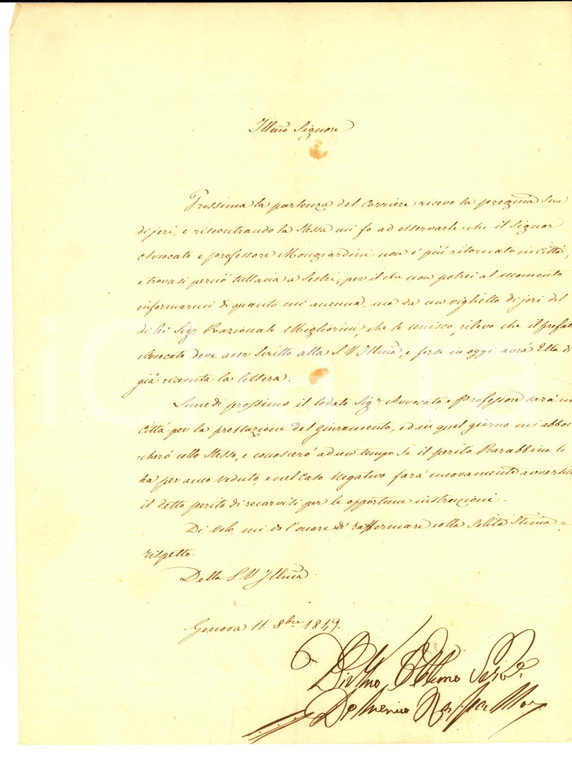 Illmo Signore
Prossima la partenza del Corriere ricevo la pregma Sua
di jeri, e riscontrando la stessa mi fo ad osservarle che il Signor
Avvocato e professore Mongiardini non è più ritornato in Città,
e trovasi perciò tuttavia a Sestri, per il che non potei al momento
informarmi di quanto mi accenna, ma da un viglietto di jeri del
di lei Sigr Razionale Migliorini, che le unisco, rilevo che il prefato
Avvocato deve aver scritto alla S.V. Illma, e forse in oggi avrà Ella di
già ricevuta la lettera.
Lunedì prossimo il lodato Sigr Avvocato e Professore sarà in
Città per la prestazione del giuramento, ed in quel giorno mi abboc
cherò collo stesso, e conoscerò ad un tempo se il perito Barabbino lo
ha per anco veduto, e nel caso negativo farò nuovamente avvertito
il detto perito di recarvisi per le opportune instruzioni.
Di volo, mi do l'onore di raffermare colla solita stima e
rispetto
Della S.V. Illma
Genova 11. 8bre 1849.
Divmo Obblmo Servre
Domenico
iCharta